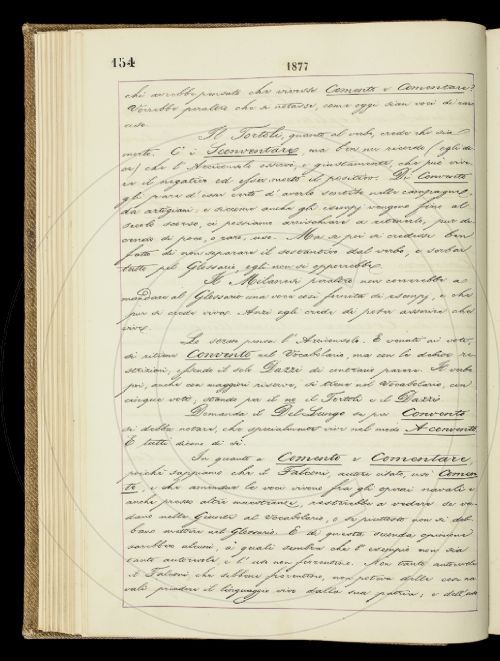 154
1877
chi avrebbe pensato che vivesse Comento e Comentare?
Vorrebbe peraltro che si notasse, come oggi sian voci di raro
uso.
Il Tortoli, quanto al verbo, crede che sia
morto. C'è Sconventare, ma ben mi ricordo (egli di-
ce) che l'Arcicensolo osservò, e giustamente, che può vive-
re il negativo ed esser morto il positivo. Di Convento
gli pare d'esser certo d'averlo sentito nelle campagne,
da artigiani, e siccome anche gli esempj vengono fino al
secolo scorso, ci possiamo arrischiare a ritenerlo, pur di-
cendo di poco, o raro, uso. Ma se poi si credesse ben
fatto di non separare il sostantivo dal verbo, e serbar
tutto pel Glossario, egli non si opporrebbe.
Il Milanesi peraltro non correrebbe a
mandare al Glossario una voce così fornita di esempj, e che
pur si crede viva. Anzi egli crede di poter asserire che
vive.
Lo stesso pensa l'Arciconsolo. E venuti ai voti,
si ritiene Convento nel Vocabolario, ma con le debite re-
strizioni, essendo il solo Dazzi di contrario parere. Il verbo
poi, anche con maggiori riserve, si tiene nel Vocabolario, con
cinque voti, stando per il no il Tortoli e il Dazzi.
Domanda il Del Lungo se per Convento
si debba notare, che specialmente vive nel modo A convento.
E tutti dicono di sì.
In quanto a Comento e Comentare,
poichè sappiamo che il Falconi, autore citato, usò Comen-
to, e che amendue le voci vivono fra gli operai navali e
anche presso altre maestranze, resterebbe a vedere se va-
dano nella Giunta al Vocabolario, o se piuttosto non si deb-
bano mettere nel Glossario. E di questa seconda opinione
sarebbero alcuni, ai quali sembra che l'esempio non sia
tanto autorevole, e l'uso non fiorentino. Non tanto autorevole
il Falconi, che sebbene fiorentino, non poteva delle cose na-
vali prendere il linguaggio vivo dalla sua patria; e dell'uso